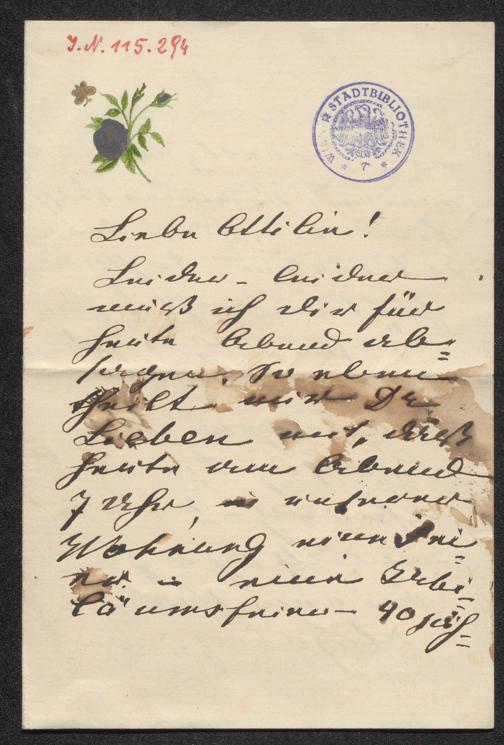 J.N. 115.294
WIENER STADTBIBLIOTHEK
Liebe Ottilie!
Leider – leider
muß ich dir für
heute Abend ab=
sagen. So eben
theilt mir Dr
Lieben mit, daß
heute um Abend
7 Uhr, in unserer
Wohnung eine Fei=
er – eine Jubi=
läumsfeier – 40 jäh=